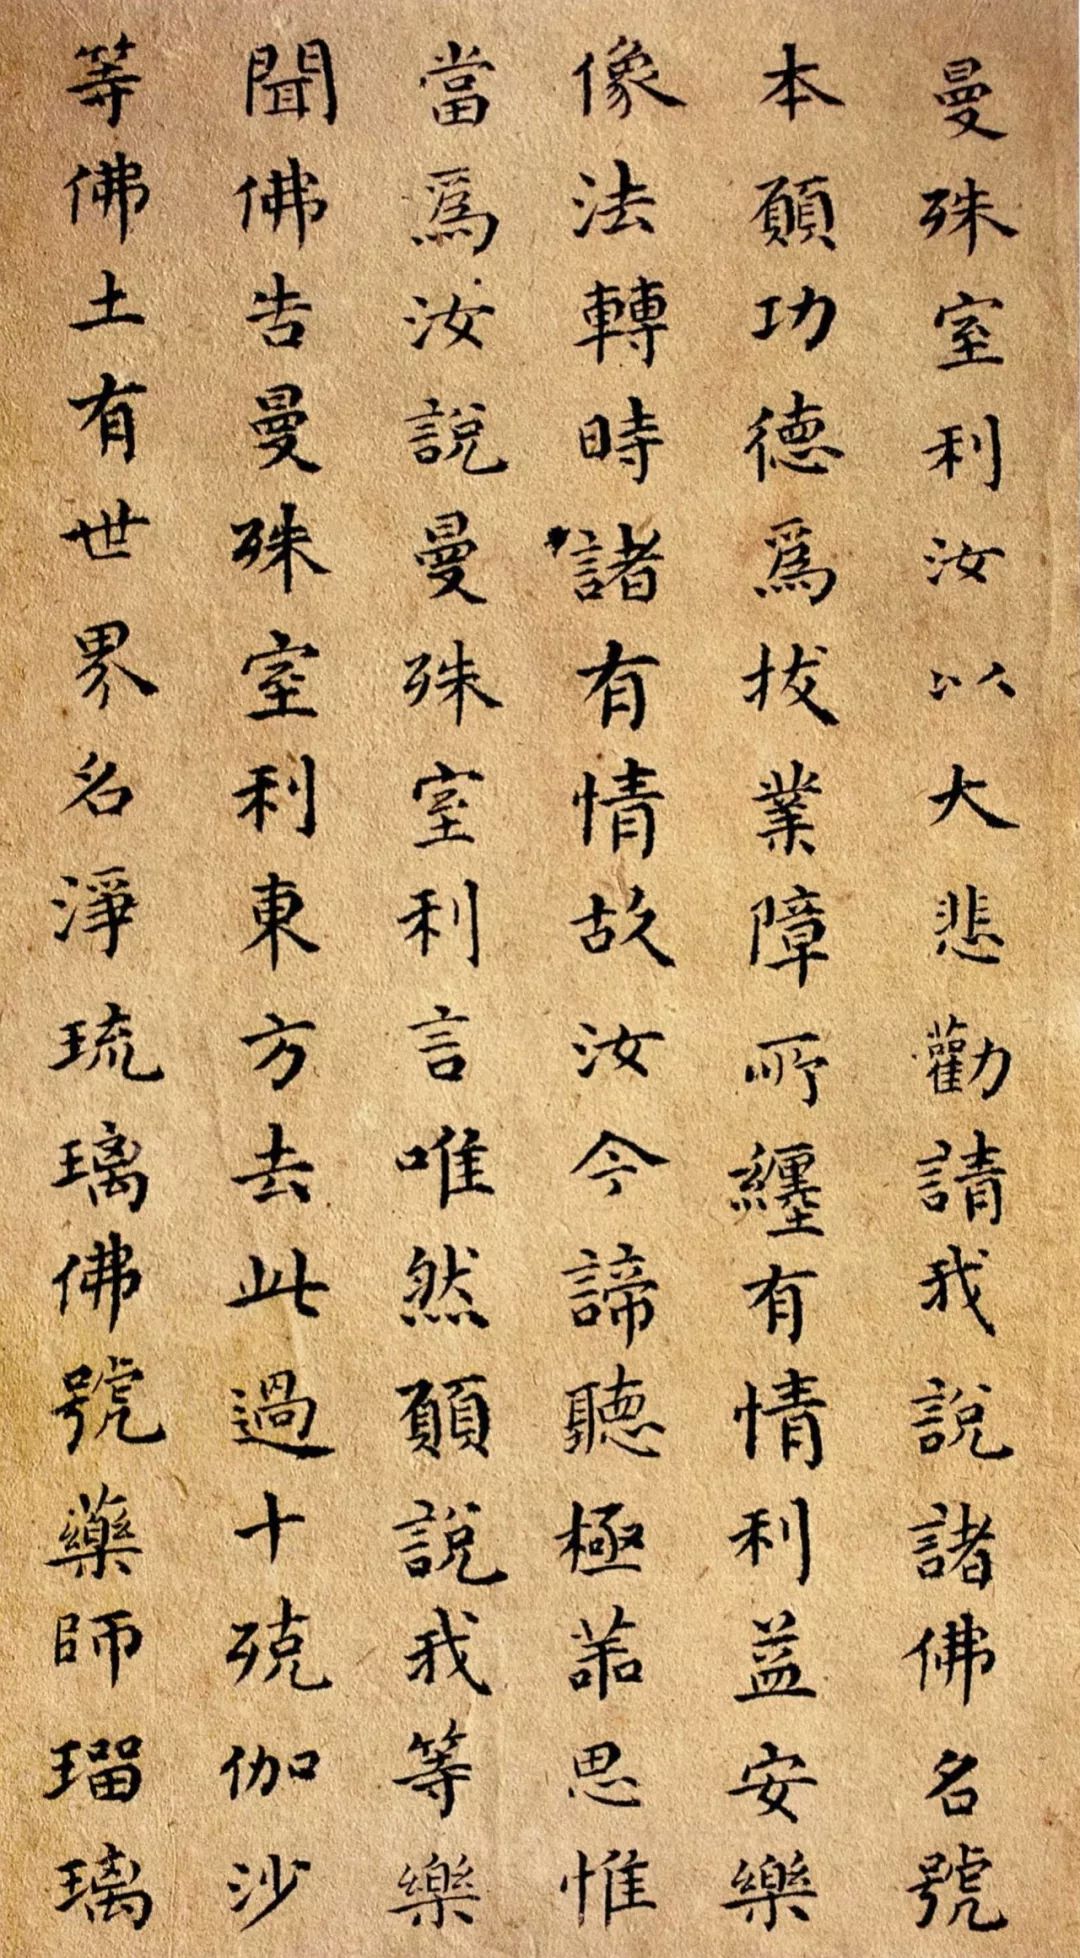 曼殊室利汝以大悲勸請我說諸佛名號
本願功德爲拔業障所纏有情利益安樂
像法轉時諸有情故汝今諦聽極善思惟
當爲汝說曼殊室利言唯然願說我等樂
聞佛告曼殊室利東方去此過十殑伽沙
等佛土有世界名淨琉璃佛號藥師瑠璃